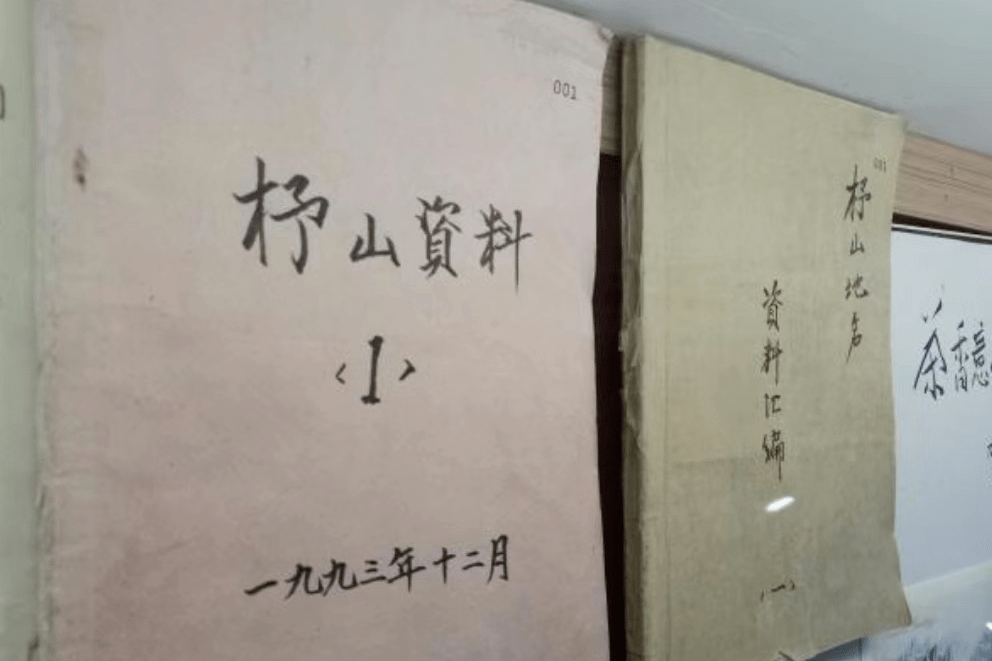 001
杼山資料
<1>
一九九三年十二月
001
杼山地名
資料汇编
(一)
茶香